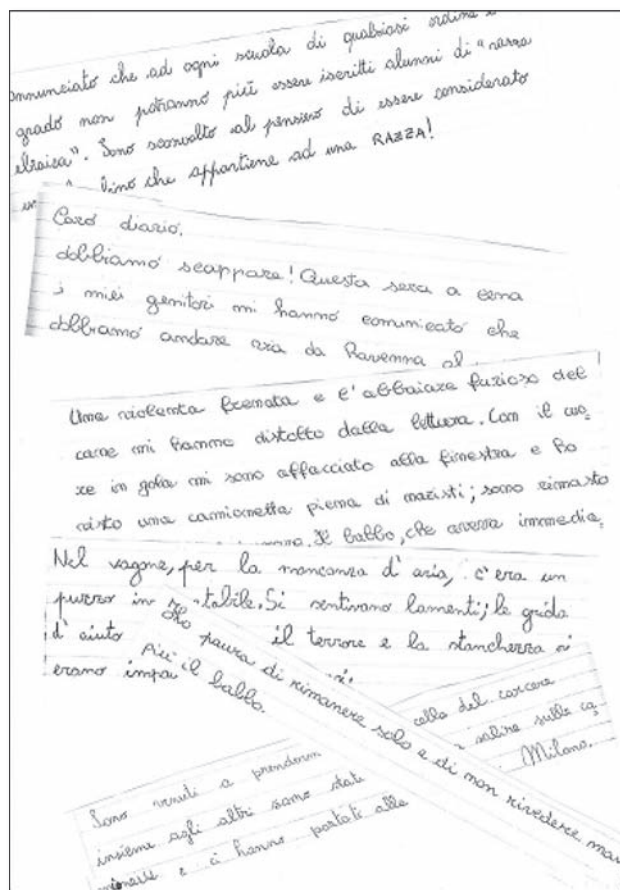 annunciato che ad ogni scuola di qualsiasi ordine e
grado non potranno più essere iscritti alunni di "razza
ebraica". Sono sconvolto al pensiero di essere considerato
bino che appartiene ad una RAZZA!
Caro diario,
dobbiamo scappare! Questa sera a cena
i miei genitori mi hanno comunicato che
dobbiamo andare via da Ravenna al
Una violenta frenata e l'abbaiare furioso del
cane mi hanno distolto dalla lettura. Con il cuo-
re in gola mi sono affacciato alla finestra e ho
visto una camionetta piena di nazisti; sono rimasto
Il babbo, che aveva immedia-
Nel vagone, per la mancanza d'aria, c'era un
puzzo in tabile. Si sentivano lamenti; le grida
d'aiuto il terrore e la stanchezza si
erano impa
Ho paura di rimanere solo e di non rivedere mai
più il babbo.
Sono venuti a prenderm cella del carcere
insieme agli altri sono stati salire sulla ca-
e ci hanno portati alla Milano.